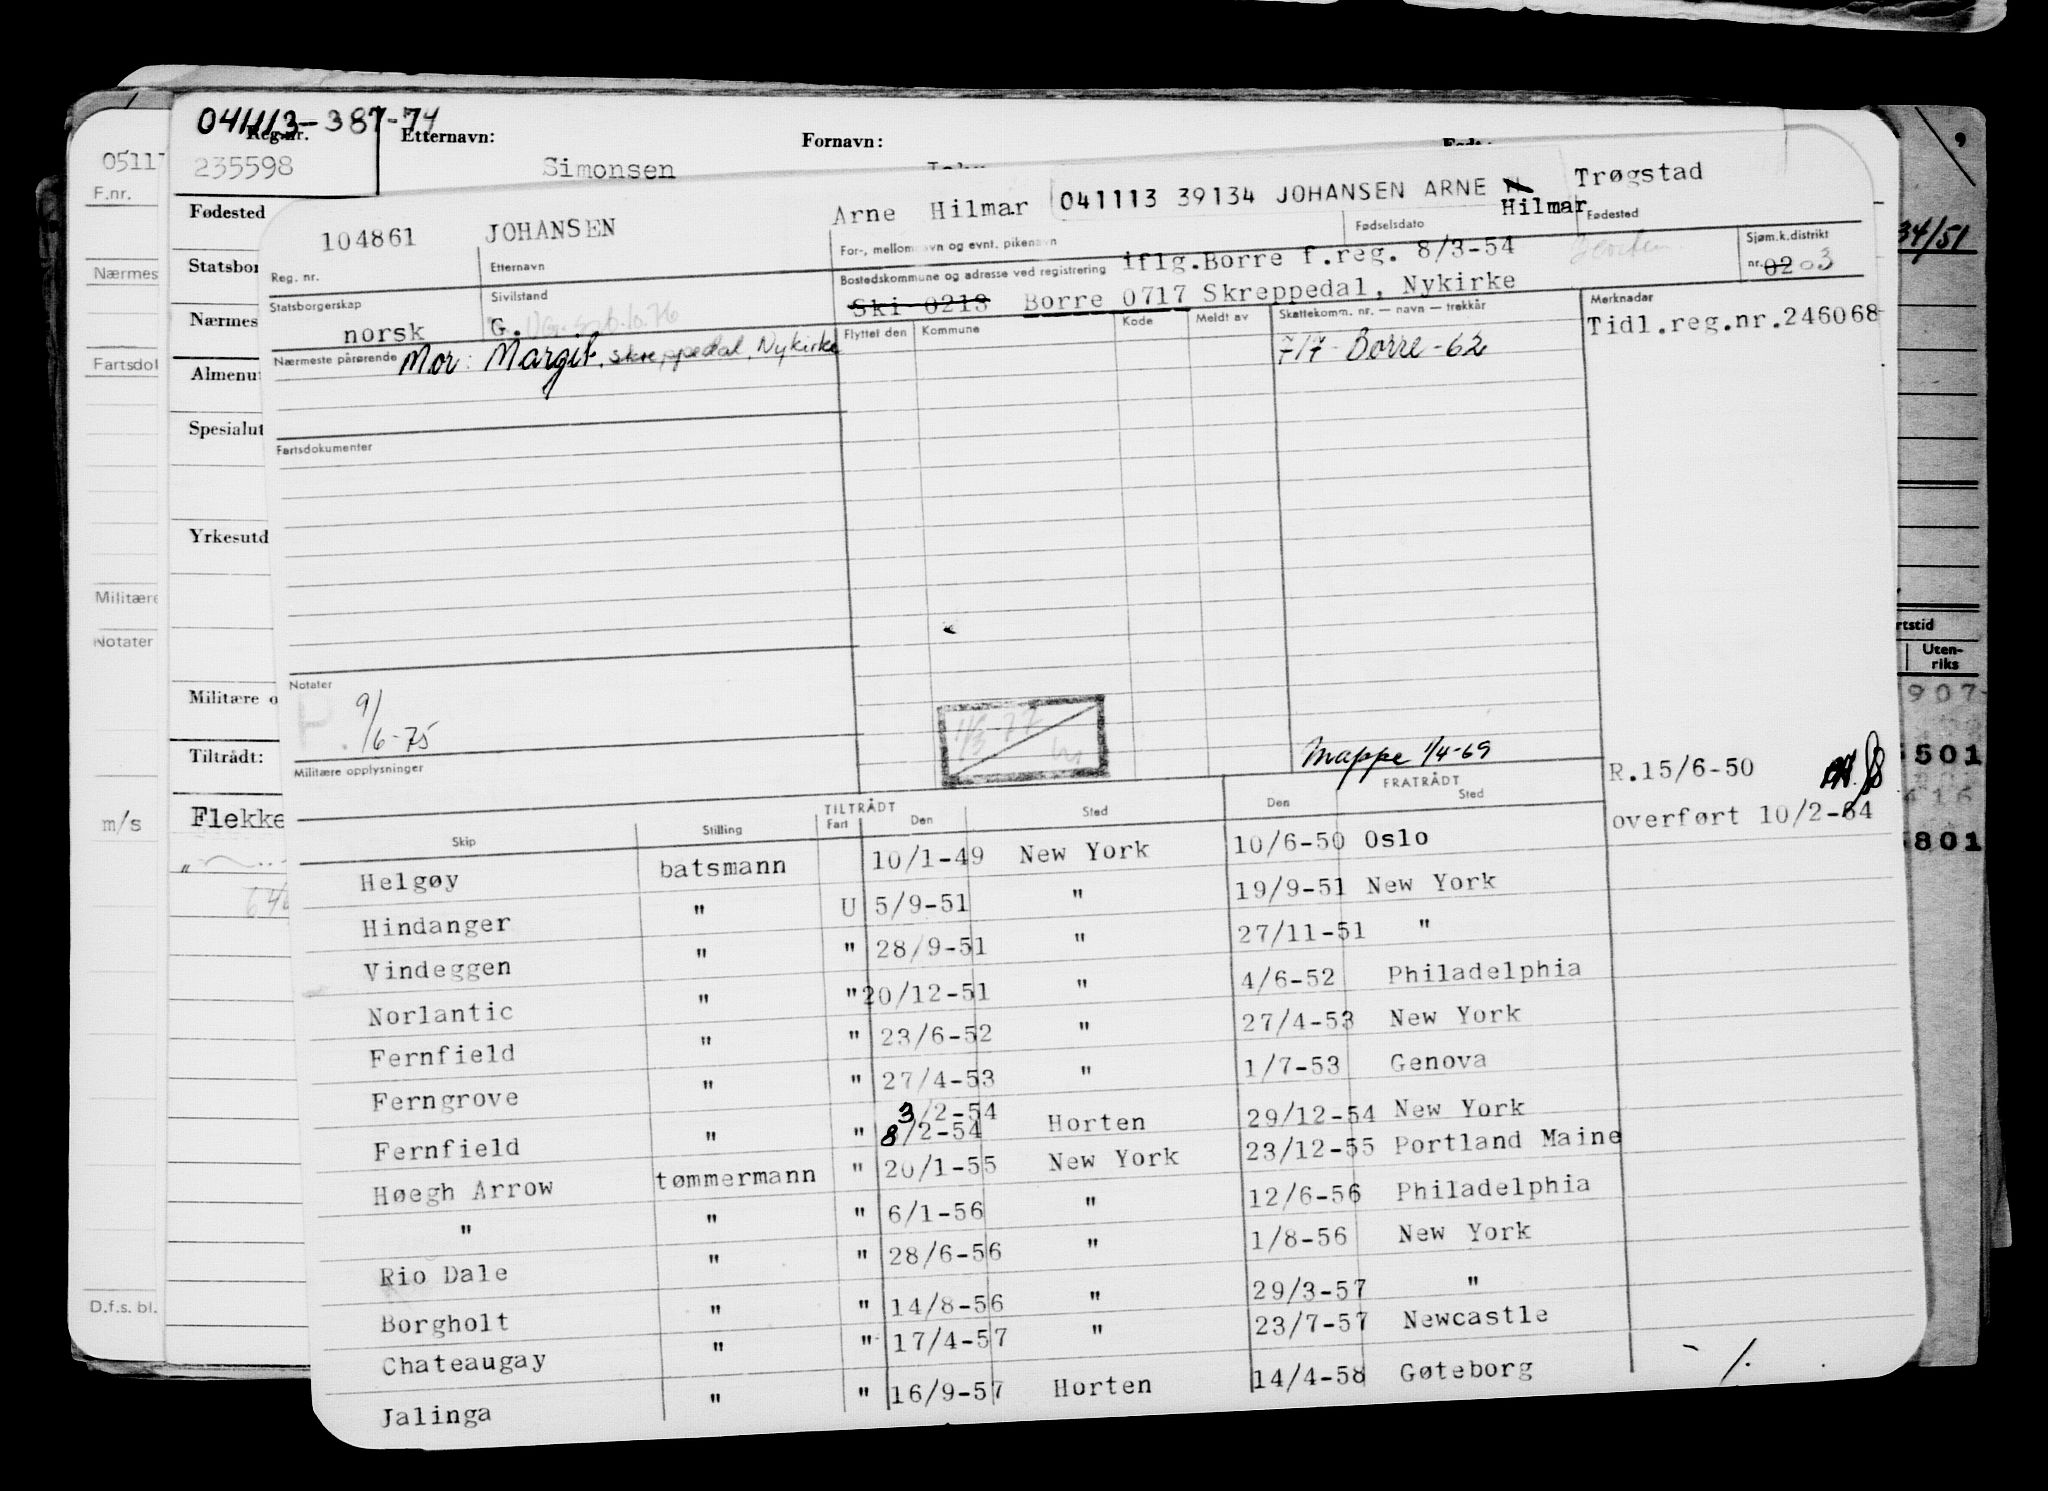 041113-387-74
Reg.nr. Etternavn: Fornavn:
235598 Simonsen
0511
F.nr.
Fødested
Statsbor
Nærmes
Nærmes
Fartsdol
Almenut
Spesialut
Yrkesutd
Militære
Notater
Militære o
Tiltrådt:
m/s
Flekke
D.f.s. bl.
34/51
rtstid
Uten-
riks
907
501
416
801
104861 JOHANSEN Arne Hilmar 041113 39134 JOHANSEN ARNE H Trøgstad
Hilmar
Reg. nr. Etternavn For-, mellomnavn og evnt. pikenavn Fødselsdato Fødested
Statsborgerskap Sivilstand Bostedskommune og adresse ved registrering iflg.Borre f.reg. 8/3-54 Sjøm.k.distrikt
nr. 02 03
norsk G. Ski 0213 Borre 0717 Skreppedal, Nykirke
Nærmeste pårørende Mor: Margit, Skreppedal, Nykirke
Flyttet den Kommune Kode Meldt av Skattekomm. nr. — navn — trekkår Merknader
7/7 Borre -62 Tidl.reg.nr.246068
Fartsdokumenter
Notater
9/6-75
11/3-77
Mappe 1/4-69
Militære opplysninger
R.15/6-50
overført 10/2-64
TILTRÅDT FRATRÅDT
Skip Stilling Fart Den Sted Den Sted
Helgøy batsmann 10/1-49 New York 10/6-50 Oslo
Hindanger " U 5/9-51 " 19/9-51 New York
Vindeggen " " 28/9-51 " 27/11-51 "
Norlantic " " 20/12-51 " 4/6-52 Philadelphia
Fernfield " " 23/6-52 " 27/4-53 New York
Ferngrove " " 27/4-53 " 1/7-53 Genova
3/2-54
Fernfield " " 8/2-54 Horten 29/12-54 New York
Høegh Arrow tømmermann " 20/1-55 New York 23/12-55 Portland Maine
" " " 6/1-56 " 12/6-56 Philadelphia
Rio Dale " " 28/6-56 " 1/8-56 New York
Borgholt " " 14/8-56 " 29/3-57 "
Chateaugay " " 17/4-57 " 23/7-57 Newcastle
Jalinga " " 16/9-57 Horten 14/4-58 Gøteborg